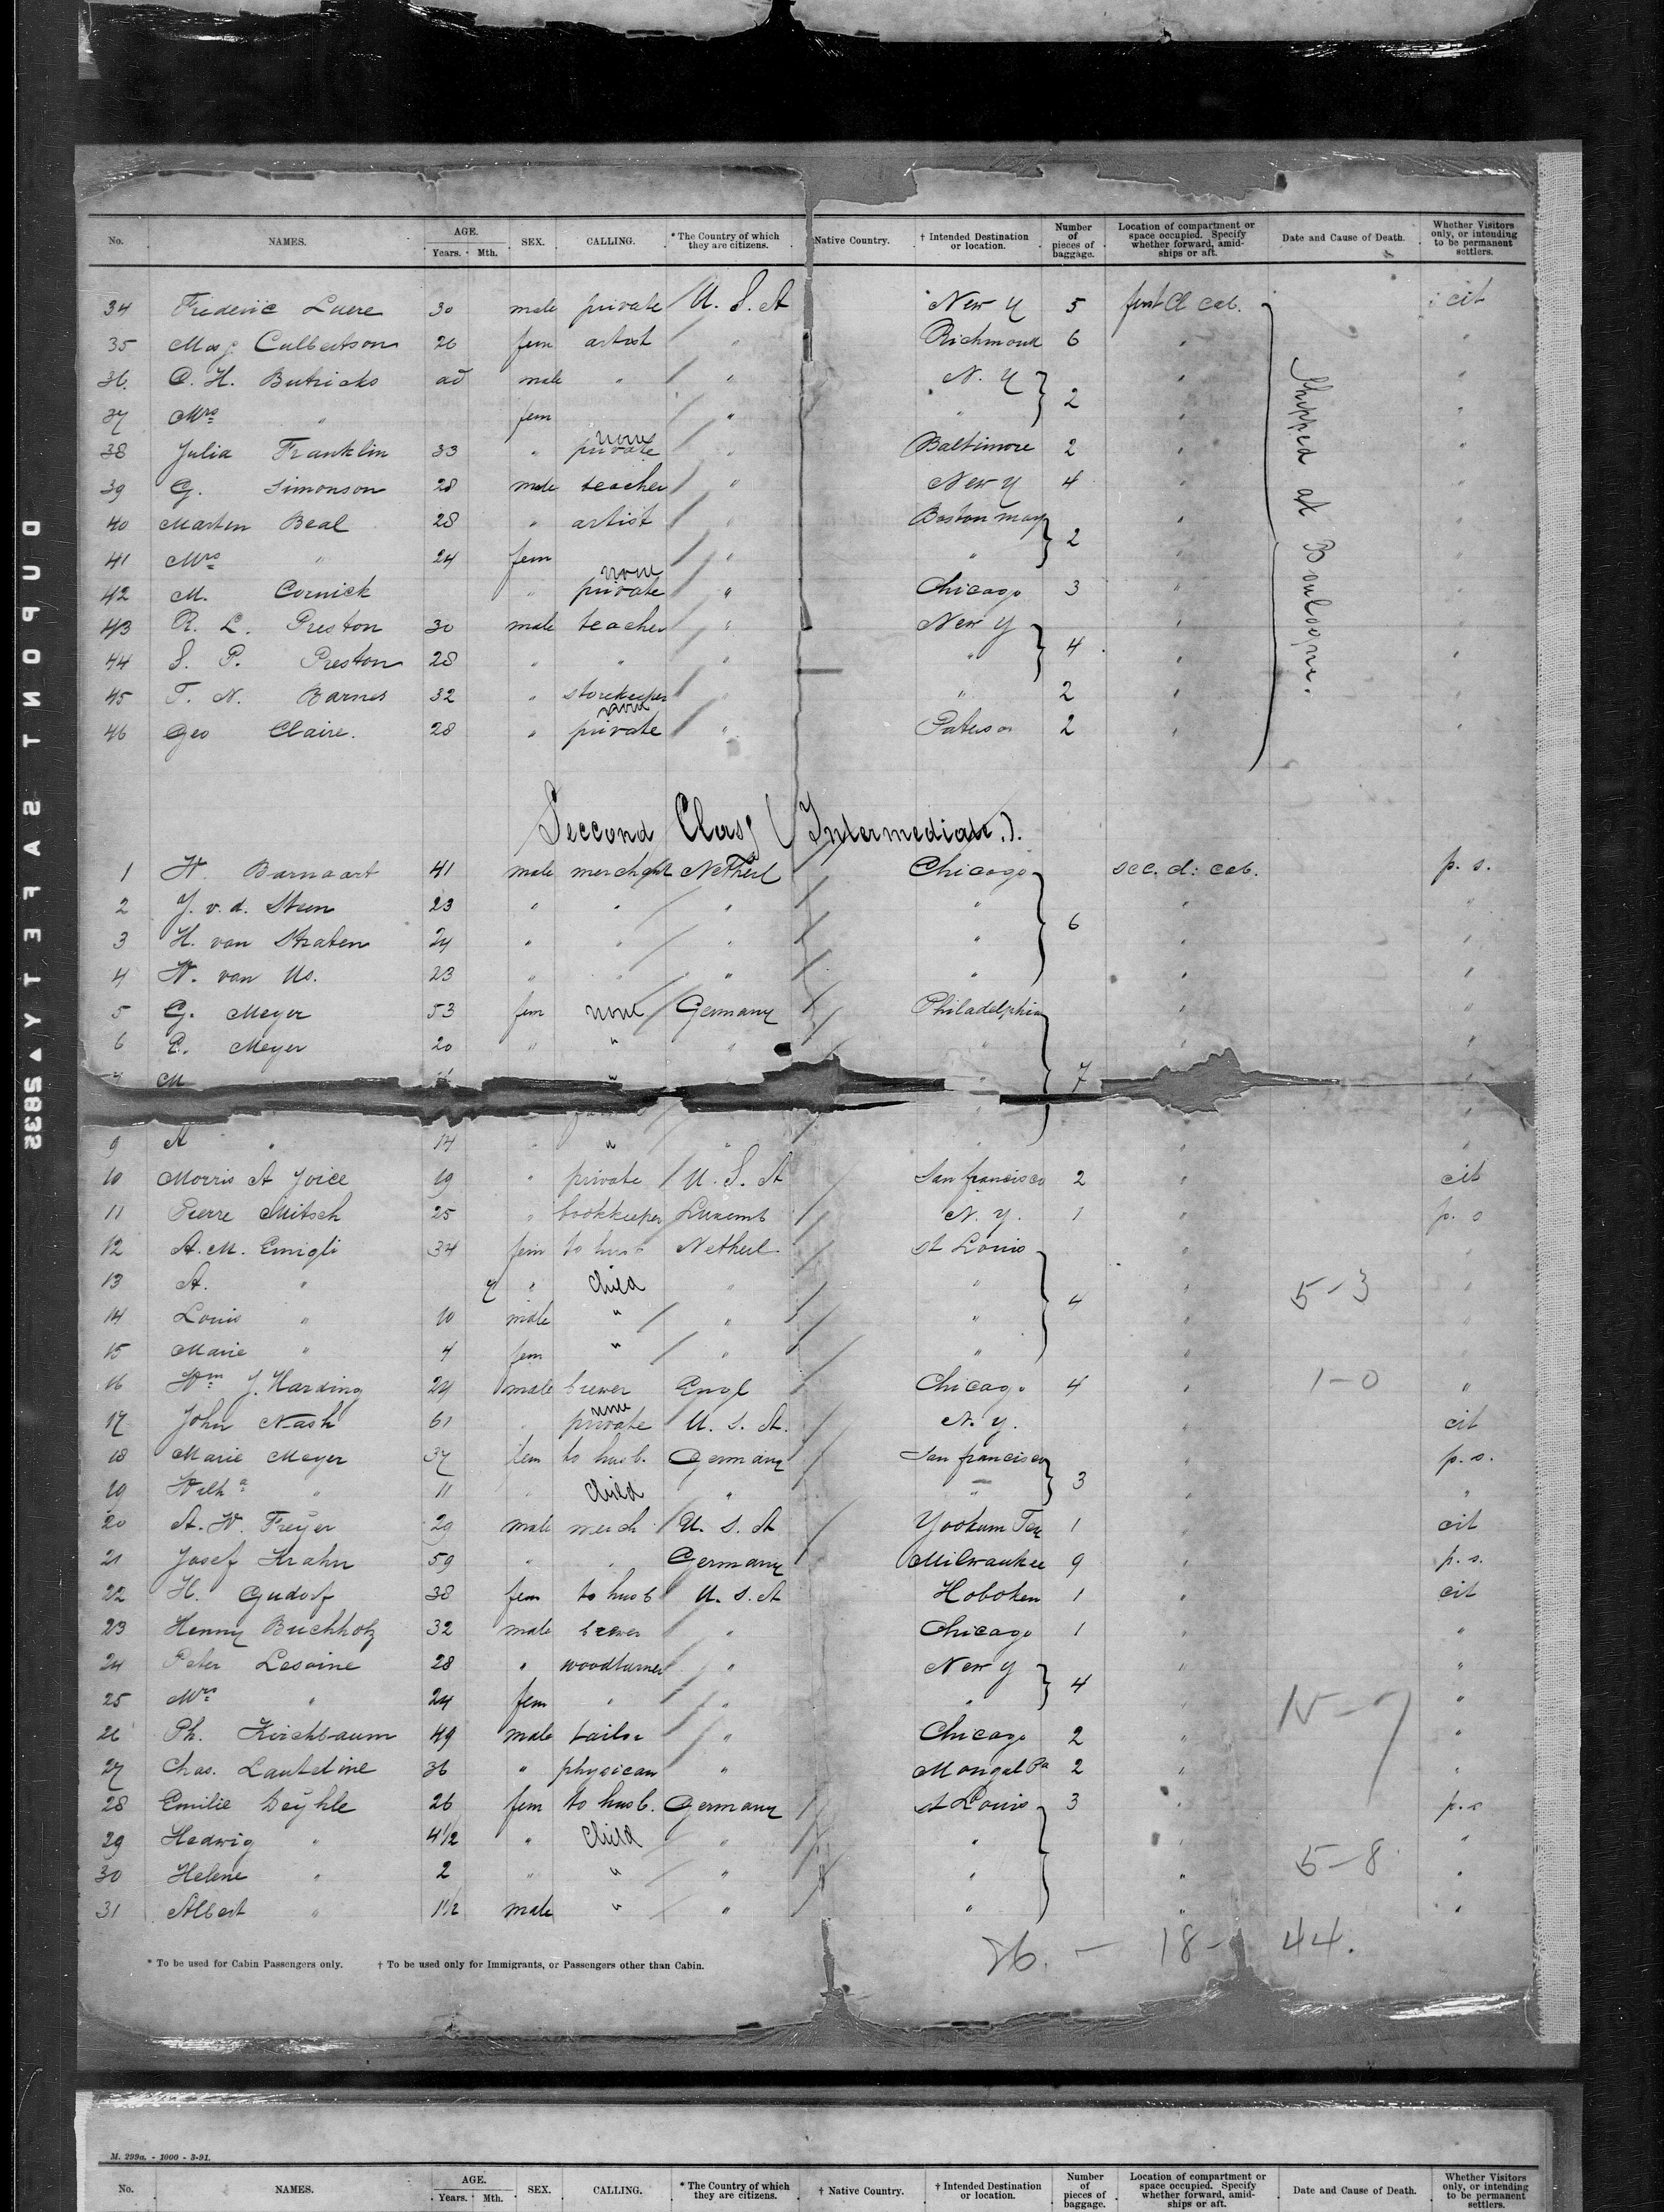 No. NAMES. AGE. Years. Mth. SEX. CALLING. * The Country of which they are citizens. Native Country. † Intended Destination or location. Number of pieces of baggage. Location of compartment or space occupied. Specify whether forward, amidships or aft. Date and Cause of Death. Whether Visitors only, or intending to be permanent settlers.
34 Frederic Luere 30 male private U. S. A New Y 5 first Cl cab. cit
35 Culbertson 26 fem artist " Richmond 6 " "
36. C. H. Butricks ad male " " N. Y 2 " "
37 Mrs " fem " " " "
38 Julia Franklin 33 " none private " Baltimore 2 " "
39 G. Simonson 28 male teacher " New Y 4 " "
40 Marten Beal 28 " artist " Boston 2 " "
41 Mrs " 24 fem " " " "
42 M. Cornick " none private " Chicago 3 " "
43 R. L. Preston 30 male teacher " New Y 4 " "
44 S. P. Preston 28 " " " " " "
45 T. N. Barnes 32 " storekeeper " " 2 " "
46 Geo Claire. 28 " none private " Paterson 2 " "
Shipped at Boulogne.
Seccond Class (Intermediate).
1 W. Barnaart 41 male merchght Netherl Chicago 6 sec. cl: cab. p. s.
2 J. v. d. Steen 23 " " " " " "
3 H. van Straten 24 " " " " " "
4 W. van Us. 23 " " " " " "
5 G. Meyer 53 fem none Germany Philadelphia 7 " "
6 E. Meyer 20 " " " " " "
7 M " " "
9 A " 14 " " " " " "
10 Morris A Joice 19 " private U. S. A San francisco 2 " cit
11 Pierre Mitsch 25 " bookkeeper Luxemb N. y. 1 " p. s
12 A. M. Emigli 34 fem to husb Netherl. St Louis 4 " "
13 A. " 7 " child " " " 5-3 "
14 Louis " 10 male " " " " "
15 Marie " 4 fem " " " " "
16 Wm J. Harding 24 male brewer Engl Chicago 4 " 1-0 "
17 John Nash 61 " none private U. S. A. N. y. " cit
18 Marie Meyer 37 fem to husb. Germany San francisco 3 " p. s.
19 Wilha " 11 " child " " " "
20 A. W. Freyer 29 male merch U. S. A Yookum Tex 1 " cit
21 Josef Krahn 59 " " Germany Milwaukee 9 " p. s.
22 H. Gudorf 38 fem to husb U. S. A Hoboken 1 " cit
23 Henny Buchholz 32 male brewer " Chicago 1 " "
24 Peter Lesoine 28 " woodturner " New Y 4 " "
25 Mrs " 24 fem " " " " "
26 Ph. Kirchbaum 49 male tailor " Chicago 2 " "
27 Chas. 36 " physican " Pa 2 " "
28 Emilie Deyhle 26 fem to husb. Germany St Louis 3 " p. s
29 Hedwig " 4½ " child " " " "
30 Helene " 2 " " " " " 5-8 "
31 Albert " 1½ male " " " " "
26. - 18- 44.
* To be used for Cabin Passengers only. † To be used only for Immigrants, or Passengers other than Cabin.
M. 299a. - 1000 - 3-91.
No. NAMES. AGE. Years. Mth. SEX. CALLING. * The Country of which they are citizens. † Native Country. † Intended Destination or location. Number of pieces of baggage. Location of compartment or space occupied. Specify whether forward, amidships or aft. Date and Cause of Death. Whether Visitors only, or intending to be permanent settlers.
DUPONT SAFETY 2885